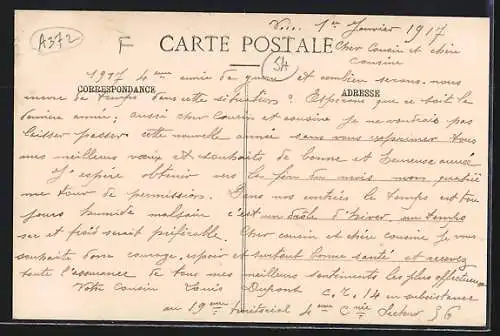 A372
F
SA
CARTE POSTALE
CORRESPONDANCE
ADRESSE
1er Janvier 1917
Cher Cousin et chère
cousine
1917 4ème année de guerre et combien serons-nous
encore de temps dans cette situation? Espérons que ce soit la
dernière année; aussi cher Cousin et cousine je ne voudrais pas
laisser passer cette nouvelle année sans vous exprimer tous
mes meilleurs vœux et souhaits de bonne et heureuse année
J'espère obtenir vers la fin du mois mon quatrième
tour de permission. Dans nos contrées le temps est tou
jours humide malsain c'est un drôle d'hiver, un temps
sec et froid serait préférable. Cher cousin et chère cousine je vous
souhaite donc courage, espoir et surtout bonne santé et recevez
toute l'assurance de tous mes meilleurs sentiments les plus affectueux
Votre cousin Louis Dupont c.r. 14 en subsistance
au 19ème territorial 4ème Cie Secteur 36